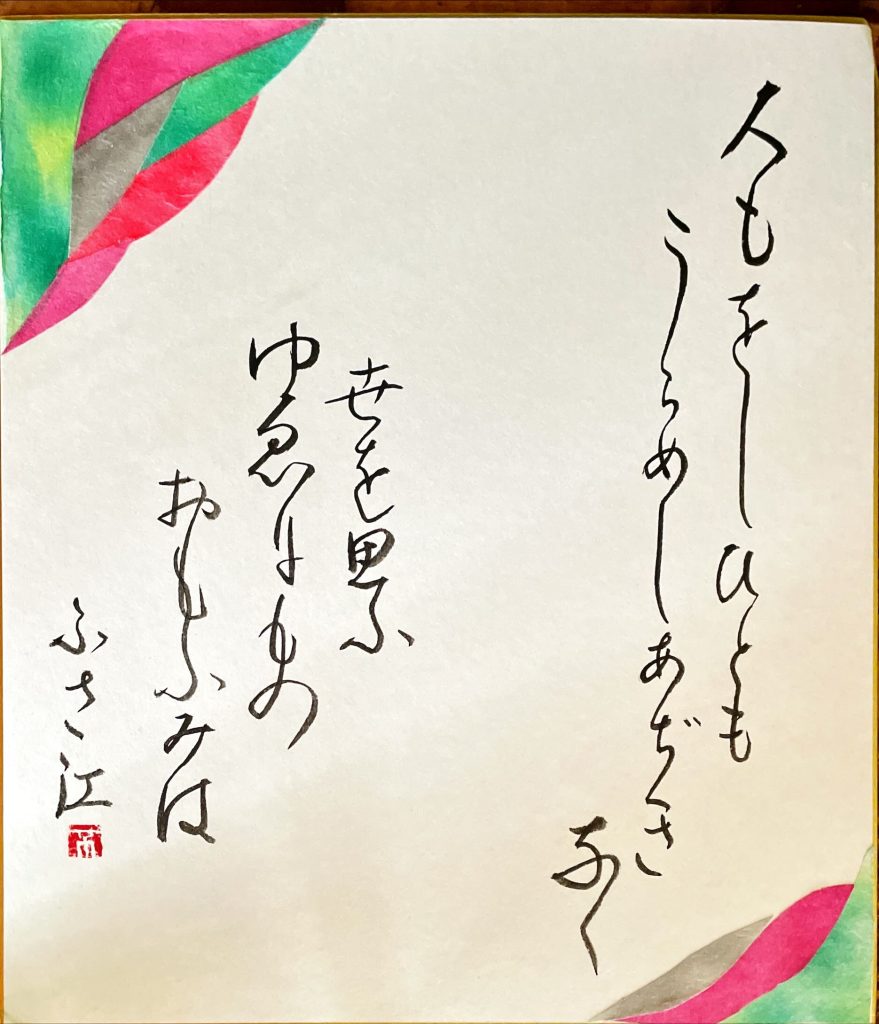 人もをしひとも
うらめしあぢき
なく
世を思ふ
ゆゑにもの
おもふみは
ふさ江